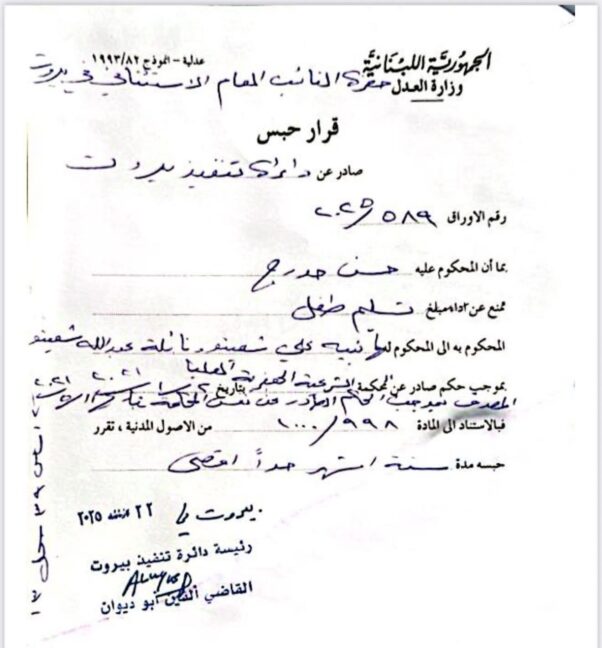 الجمهوريّة اللبنانيّة
وزارة العدل
عدلية - النموذج ١٩٩٣/٨٢
حضرة النائب العام الاستئنافي في بيروت
قرار حبس
صادر عن دائرة تنفيذ بيروت
رقم الاوراق ٢٠٢٥/٥٨٩
بما أن المحكوم عليه حسن
ممتنع عن مبلغ تسليم طفل
المحكوم به الى المحكوم علي شعيتو ونائلة عبدالله شعيتو
بموجب حكم صادر عن المحكمة الشرعية الجعفرية العليا بتاريخ ٢٠٢١
المصدق بموجب الحكم الصادر عن نفس المحكمة ٢٠٢١
فبالاستناد الى المادة ٩٩٨/١٠٠٠ من الاصول المدنية ، تقرر
حبسه مدة ستة اشهر حداً اقصى
بيروت في ٢٢ ٢٠٢٥
رئيسة دائرة تنفيذ بيروت
القاضي أبو ديوان